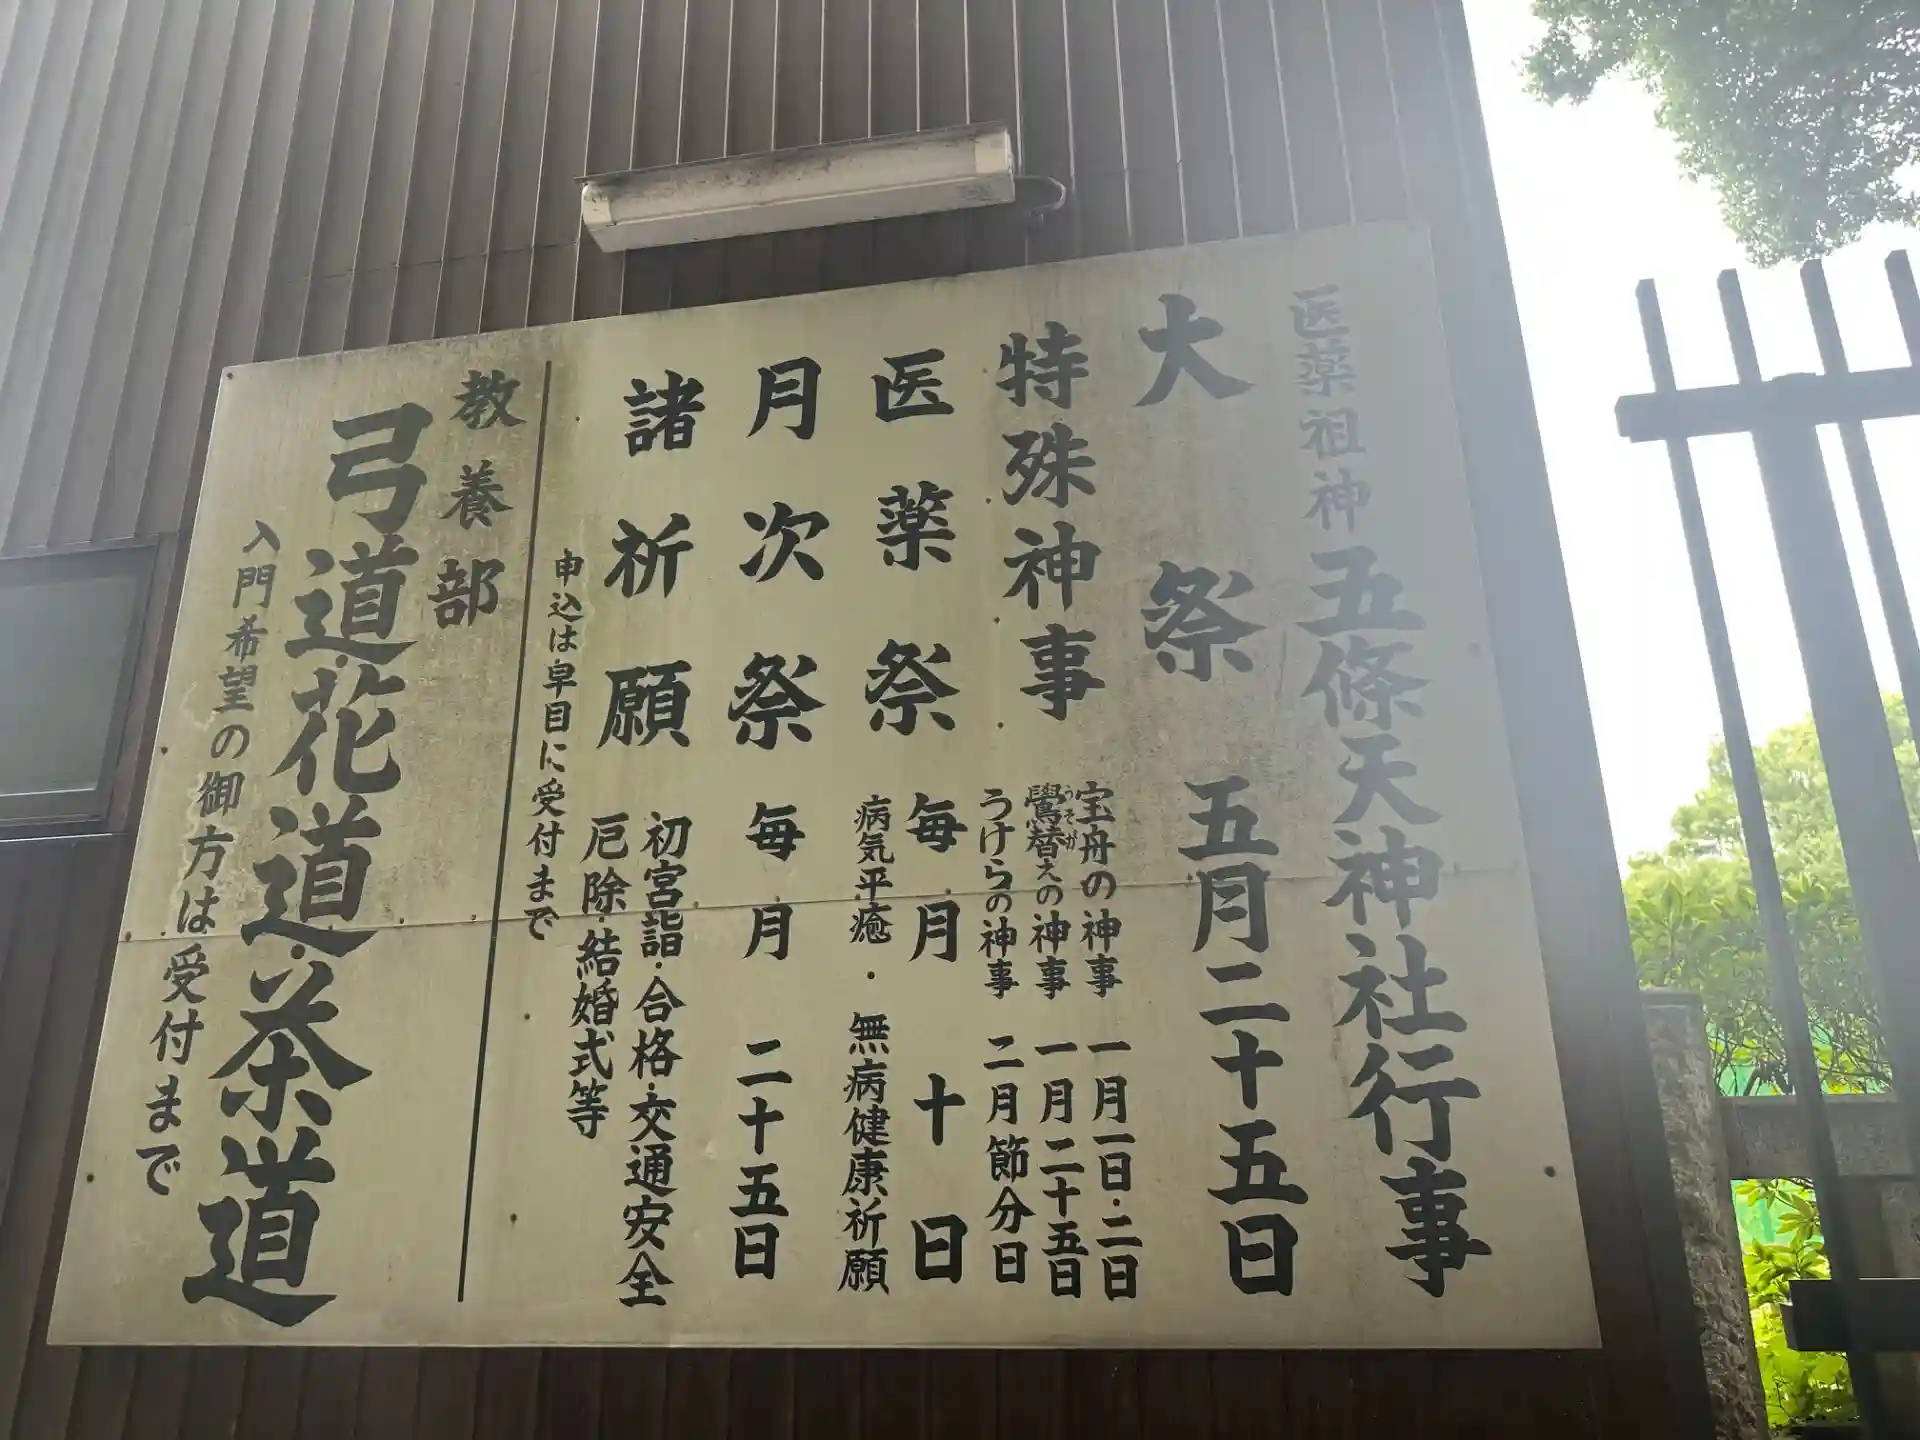 医薬祖神 五條天神社行事
大祭 五月二十五日
特殊神事
宝舟の神事 一月一日・二日
鷽替えの神事 一月二十五日
うそが
うけらの神事 二月節分日
医薬祭 毎月十日
病気平癒・無病健康祈願
月次祭 毎月二十五日
諸祈願
初宮詣・合格・交通安全
厄除・結婚式等
申込は早目に受付まで
教養部
弓道・花道・茶道
入門希望の御方は受付まで